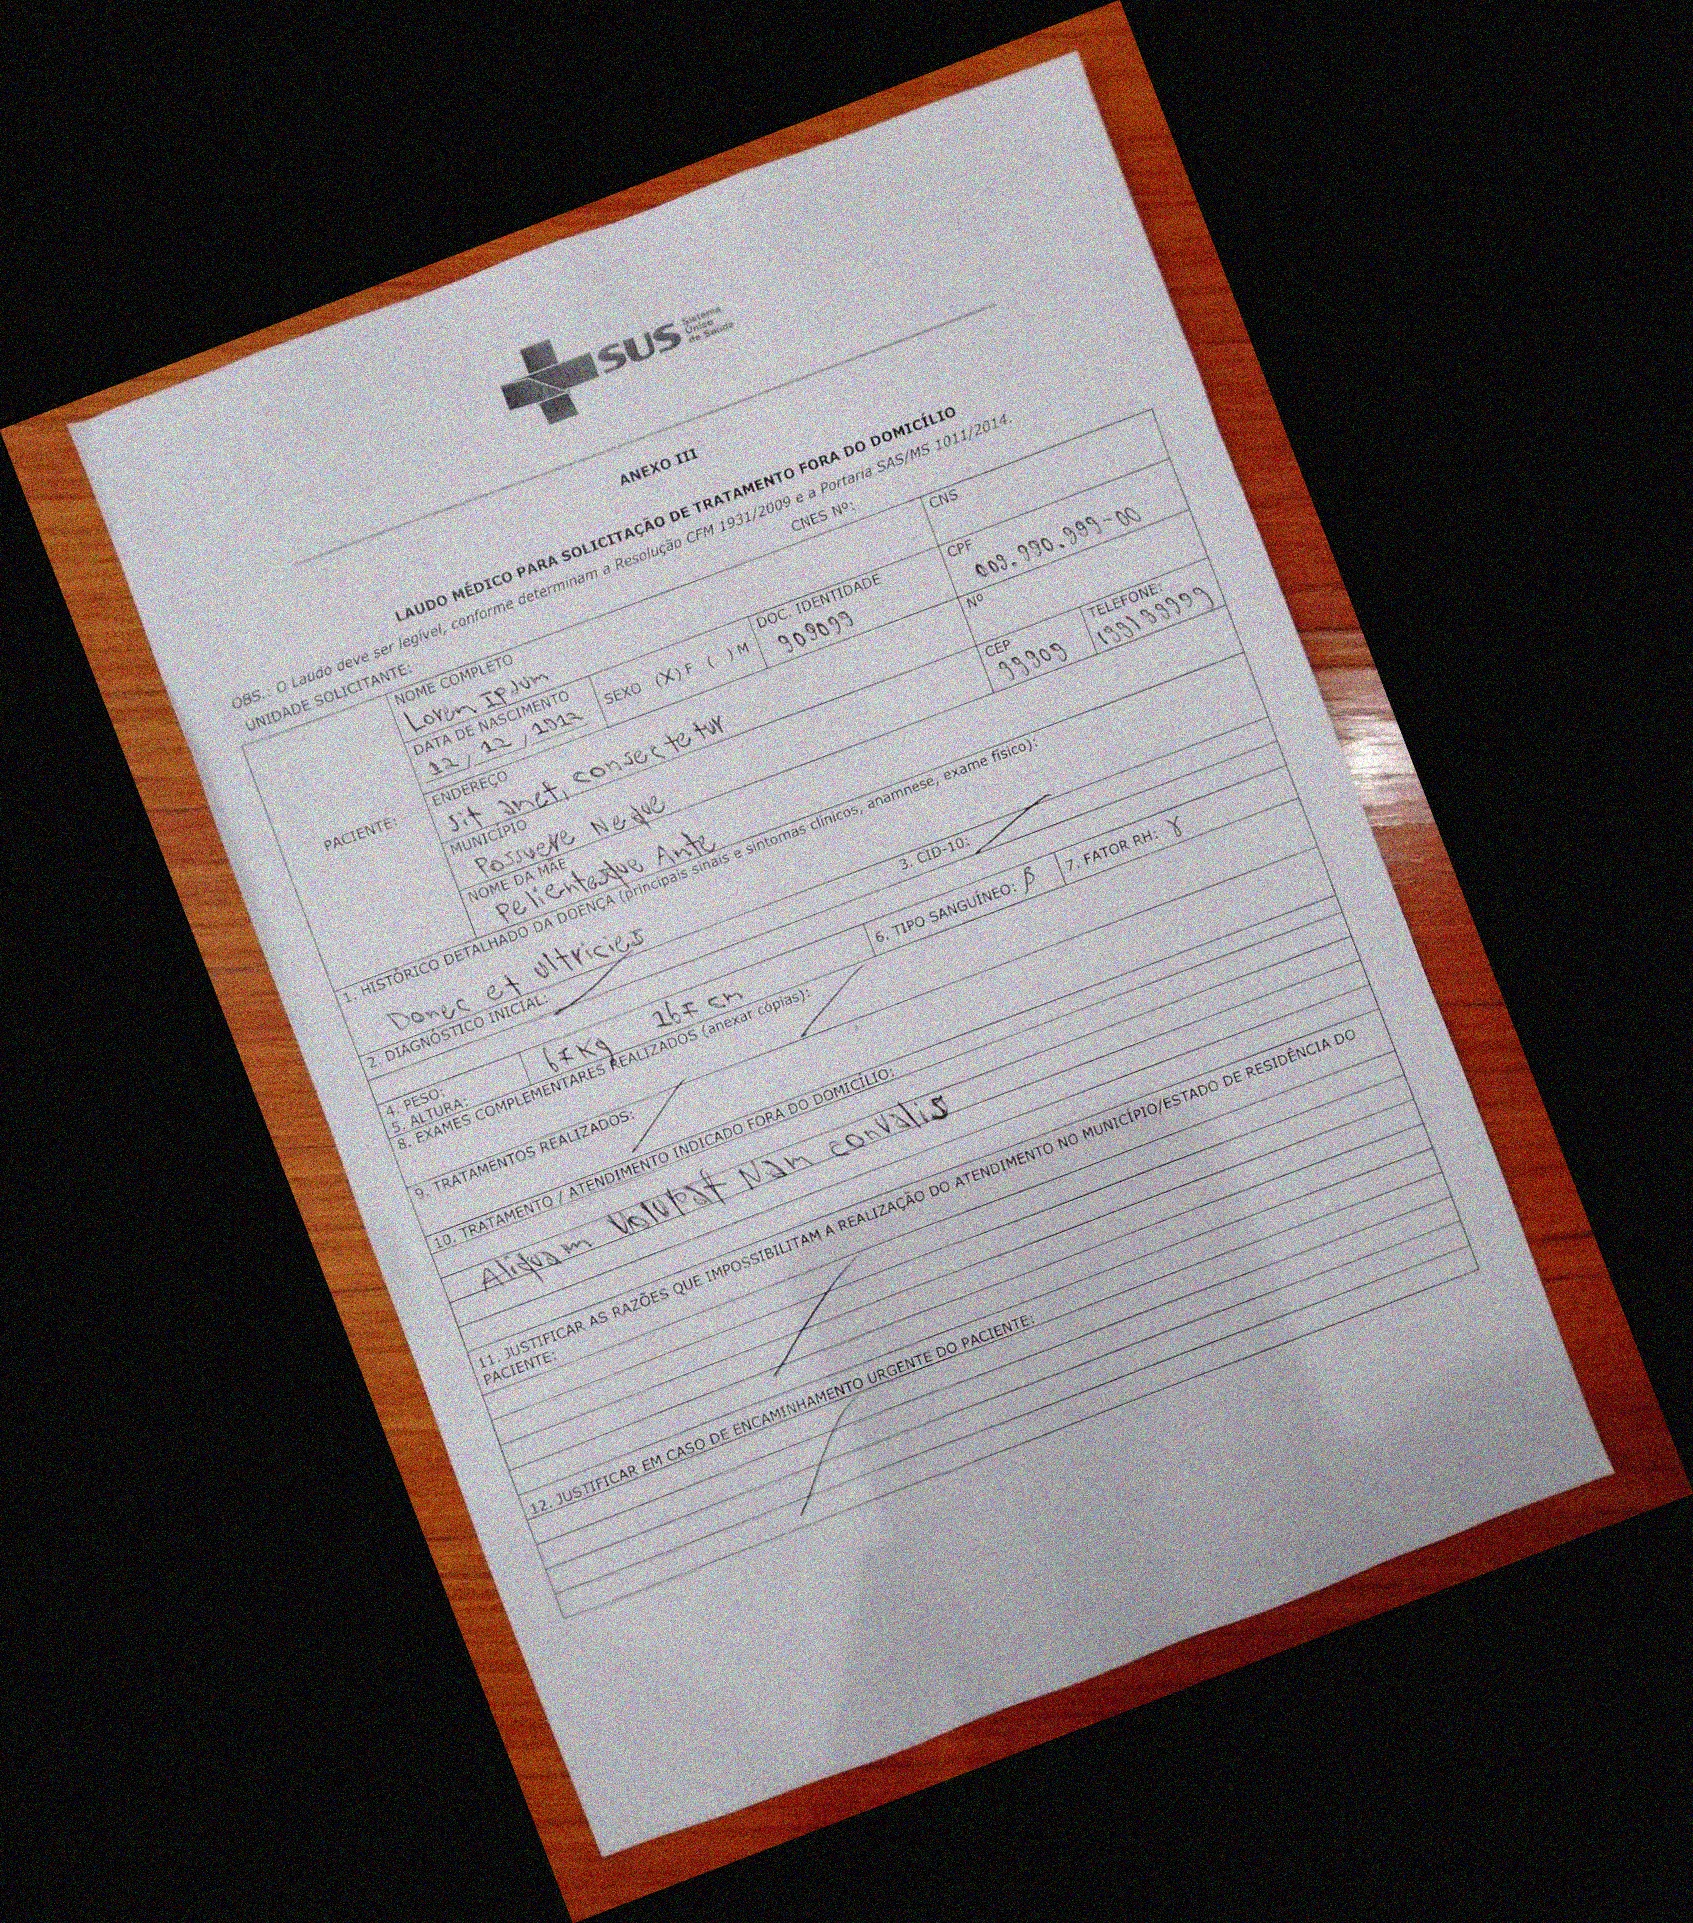 SUS Sistema
Único
de Saúde
ANEXO III
LAUDO MÉDICO PARA SOLICITAÇÃO DE TRATAMENTO FORA DO DOMICÍLIO
OBS.: O Laudo deve ser legível, conforme determinam a Resolução CFM 1931/2009 e a Portaria SAS/MS 1011/2014.
UNIDADE SOLICITANTE: CNES Nº:
PACIENTE:
NOME COMPLETO CNS
Lorem Ipsum
DATA DE NASCIMENTO SEXO (X) F ( ) M DOC. IDENTIDADE CPF
12/12/1912 909099 009.990.999-00
ENDEREÇO Nº
sit amet, consectetur
MUNICÍPIO CEP TELEFONE:
Possuere Neque 99909 (99)99999
NOME DA MÃE
Pelientesque Ante
1. HISTÓRICO DETALHADO DA DOENÇA (principais sinais e sintomas clínicos, anamnese, exame físico):
Donec et ultricies
2. DIAGNÓSTICO INICIAL: 3. CID-10:
4. PESO: 67Kg 167 cm 6. TIPO SANGUÍNEO: β 7. FATOR RH: γ
5. ALTURA:
8. EXAMES COMPLEMENTARES REALIZADOS (anexar cópias):
9. TRATAMENTOS REALIZADOS:
10. TRATAMENTO / ATENDIMENTO INDICADO FORA DO DOMICÍLIO:
Aliquam Volutpat Nam convalis
11. JUSTIFICAR AS RAZÕES QUE IMPOSSIBILITAM A REALIZAÇÃO DO ATENDIMENTO NO MUNICÍPIO/ESTADO DE RESIDÊNCIA DO
PACIENTE:
12. JUSTIFICAR EM CASO DE ENCAMINHAMENTO URGENTE DO PACIENTE: